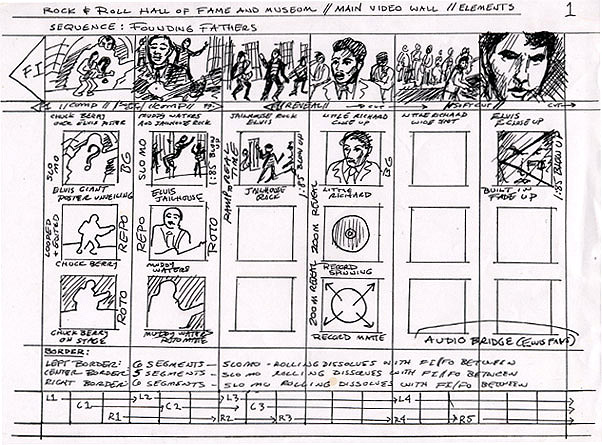 ROCK & ROLL HALL OF FAME AND MUSEUM // MAIN VIDEO WALL // ELEMENTS
1
SEQUENCE: FOUNDING FATHERS
FI
1 //COMP //
//COMP//
//REVEAL//
CUT
SOFT CUT/
CUT
CHUCK BERRY
OVER ELVIS POSTER
MUDDY WATERS
AND JAILHOUSE ROCK
JAILHOUSE ROCK
ELVIS
LITTLE RICHARD
CLOSE UP
LITTLE RICHARD
WIDE SHOT
ELVIS
CLOSE UP
SLO MO
BG
SLO MO
1:85 BLOW UP
RAMP TO REAL TIME
1:85 BLOW UP
BG
1:85 BLOW UP
ELVIS GIANT
POSTER UNVEILING
ELVIS
JAILHOUSE
JAILHOUSE
ROCK
LITTLE
RICHARD
BUILT IN
FADE UP
LOOPED + EDITED
REPO
REPO
ROTO
ZOOM REVEAL
CHUCK BERRY
MUDDY
WATERS
RECORD
SPINNING
ROTO
ZOOM REVEAL
CHUCK BERRY
ON STAGE
MUDDY WATERS
ROTO MATTE
RECORD MATTE
AUDIO BRIDGE (ELVIS FANS)
BORDER:
LEFT BORDER: 6 SEGMENTS - SLO MO - ROLLING DISSOLVES WITH FI/FO BETWEEN
CENTER BORDER: 5 SEGMENTS - SLO MO ROLLING DISSOLVES WITH FI/FO BETWEEN
RIGHT BORDER: 6 SEGMENTS - SLO MO ROLLING DISSOLVES WITH FI/FO BETWEEN
L1 L2 L3 L4
C1 C2 C3
R1 R2 R3 R4 R5